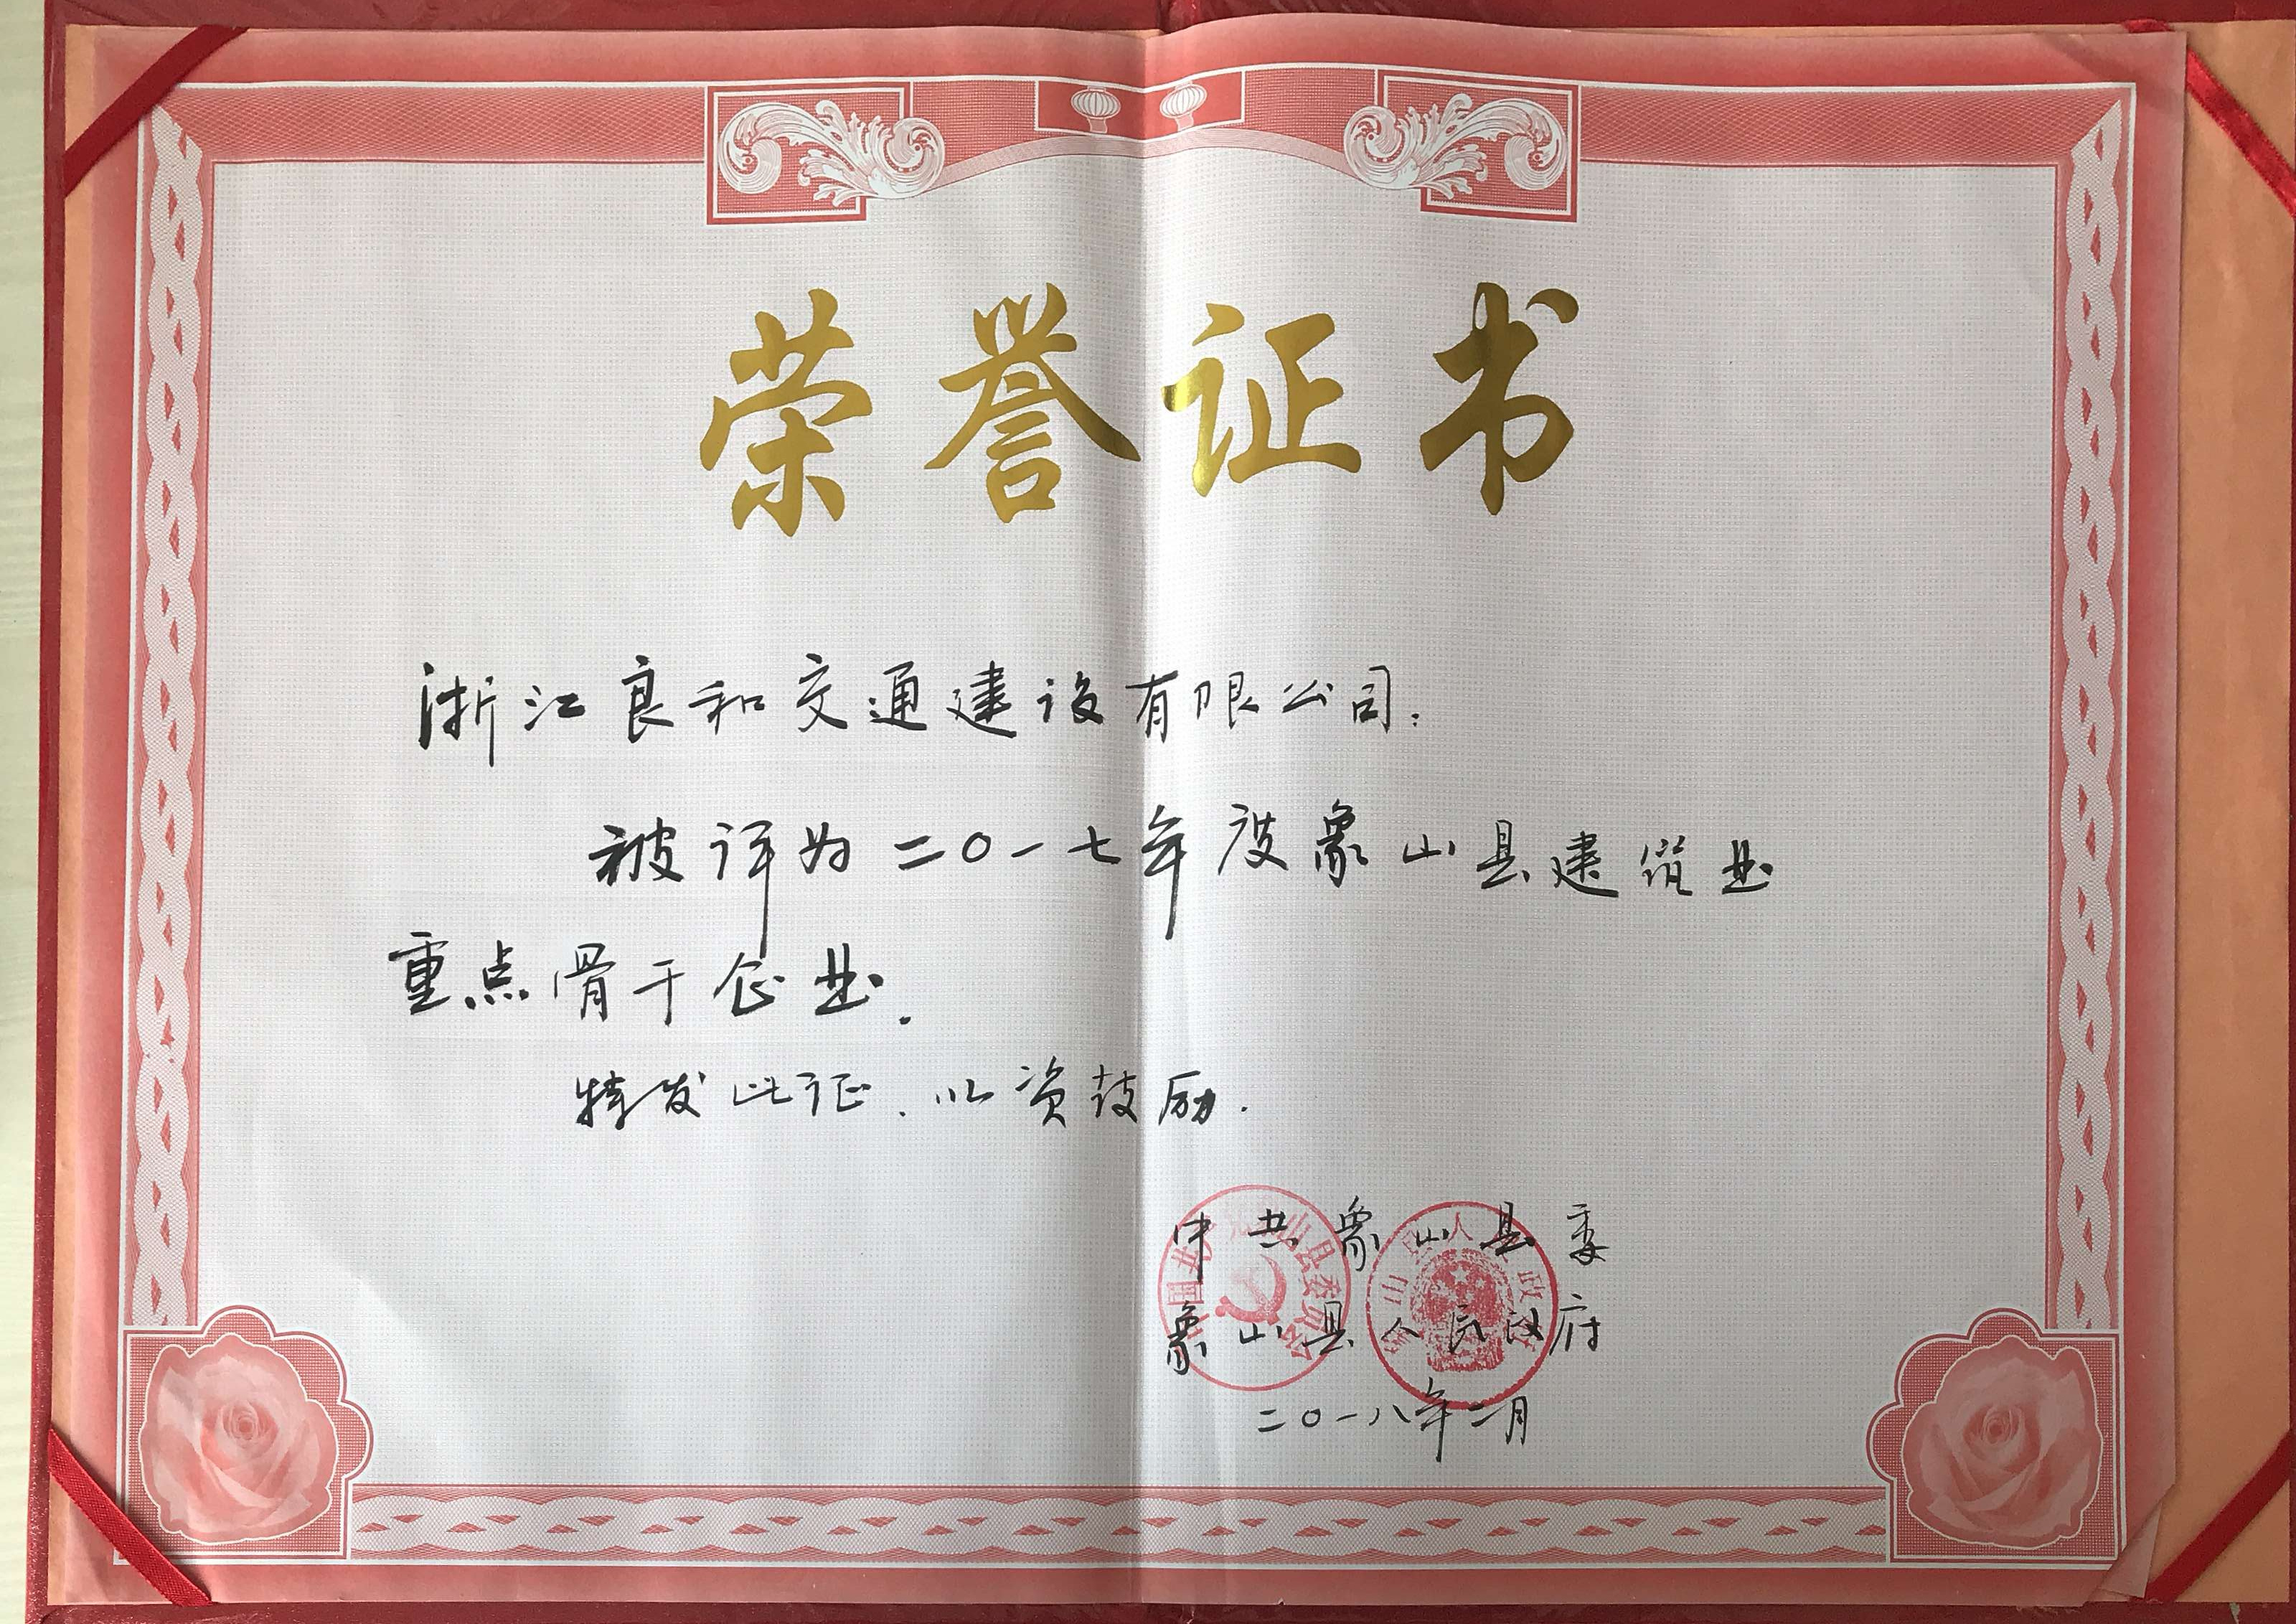 荣誉证书
浙江良和交通建设有限公司：
被评为二〇一七年度象山县建筑业
重点骨干企业.
特发此证.以资鼓励.
中共象山县委
象山县人民政府
二〇一八年二月